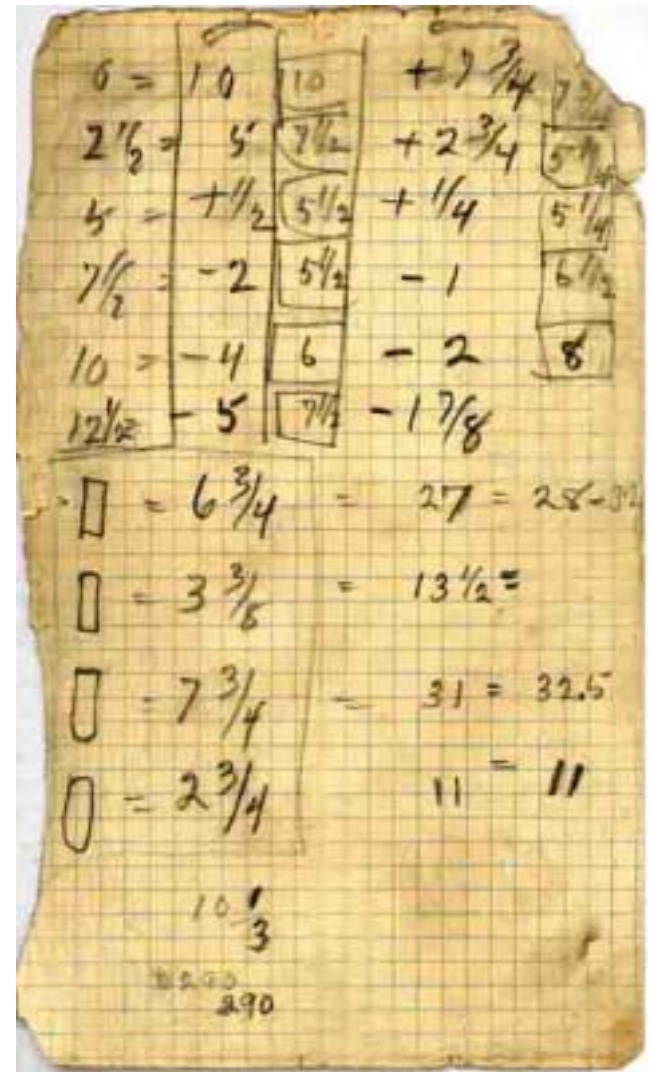 0 = 10 10 + 7 3/4 7 3/4
2 1/2 = 5 7 1/2 + 2 3/4 5 1/4
5 = + 1/2 5 1/2 + 1/4 5 1/4
7 1/2 = - 2 5 1/2 - 1 6 1/2
10 = - 4 6 - 2 8
12 1/2 - 5 7 1/2 - 1 7/8
= 6 3/4 = 27 = 28-
= 3 3/8 = 13 1/2 =
= 7 3/4 = 31 = 32.5
= 2 3/4 11 = 11
10 1/3
290
290